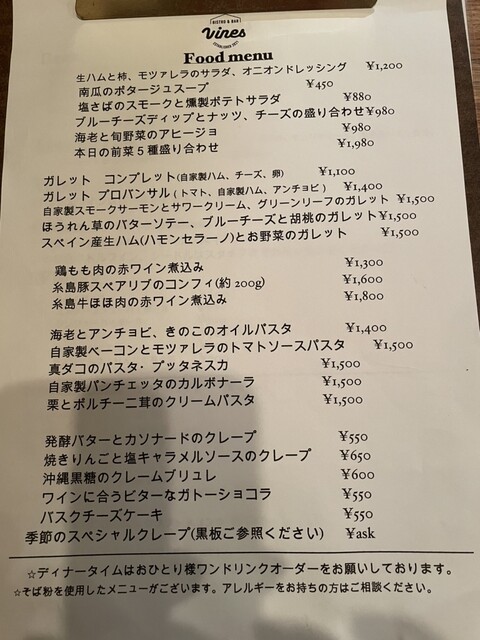 BISTRO & BAR
Vines
Food menu
生ハムと柿、モツァレラのサラダ、オニオンドレッシング ¥1,200
南瓜のポタージュスープ ¥450
塩さばのスモークと燻製ポテトサラダ ¥880
ブルーチーズディップとナッツ、チーズの盛り合わせ¥980
海老と旬野菜のアヒージョ ¥980
本日の前菜5種盛り合わせ ¥1,980
ガレット コンプレット(自家製ハム、チーズ、卵) ¥1,100
ガレット プロバンサル(トマト、自家製ハム、アンチョビ) ¥1,400
自家製スモークサーモンとサワークリーム、グリーンリーフのガレット ¥1,500
ほうれん草のバターソテー、ブルーチーズと胡桃のガレット¥1,500
スペイン産生ハム(ハモンセラーノ)とお野菜のガレット ¥1,500
鶏もも肉の赤ワイン煮込み ¥1,300
糸島豚スペアリブのコンフィ(約200g) ¥1,600
糸島牛ほほ肉の赤ワイン煮込み ¥1,800
海老とアンチョビ、きのこのオイルパスタ ¥1,400
自家製ベーコンとモツァレラのトマトソースパスタ ¥1,500
真ダコのパスタ・プッタネスカ ¥1,500
自家製パンチェッタのカルボナーラ ¥1,500
栗とポルチーニ茸のクリームパスタ ¥1,500
発酵バターとカソナードのクレープ ¥550
焼きりんごと塩キャラメルソースのクレープ ¥650
沖縄黒糖のクレームブリュレ ¥600
ワインに合うビターなガトーショコラ ¥550
バスクチーズケーキ ¥550
季節のスペシャルクレープ(黒板ご参照ください) ¥ask
☆ディナータイムはおひとり様ワンドリンクオーダーをお願いしております。
☆そば粉を使用したメニューがございます。アレルギーをお持ちの方はご相談ください。